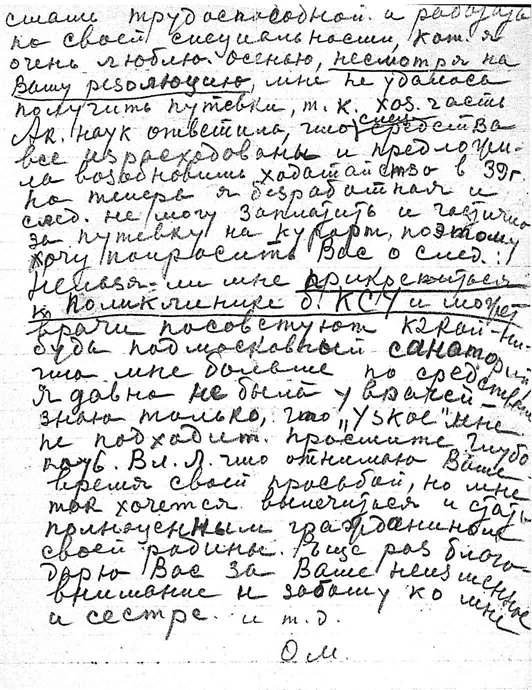 стать трудоспособной и работать
по своей специальности, кот. я
очень люблю. Осенью, несмотря на
Вашу резолюцию, мне не удалось
получить путевки, т.к. хоз. часть
Ак. наук ответила, что спец. средства
все израсходованы и предложи-
ла возобновить ходатайство в 39 г.
Но теперь я безработная и
след. не могу заплатить и частично
за путевку на курорт, поэтому
хочу попросить Вас о след.:
Нельзя-ли мне прикрепиться
к поликлинике б. КСУ и может
врачи посоветуют какой-ни-
будь подмосковный санаторий,
что мне больше по средствам
Я давно не была у врачей –
знаю только, что „Узкое" мне
не подходит. Простите глубо-
коув. Вл. Л. что отнимаю Ваше
время своей просьбой, но мне
так хочется вылечиться и стать
полноценным гражданином
своей родины. Еще раз благо-
дарю Вас за Ваше неизменное
внимание и заботу ко мне
и сестре. и т.д.
О.М.